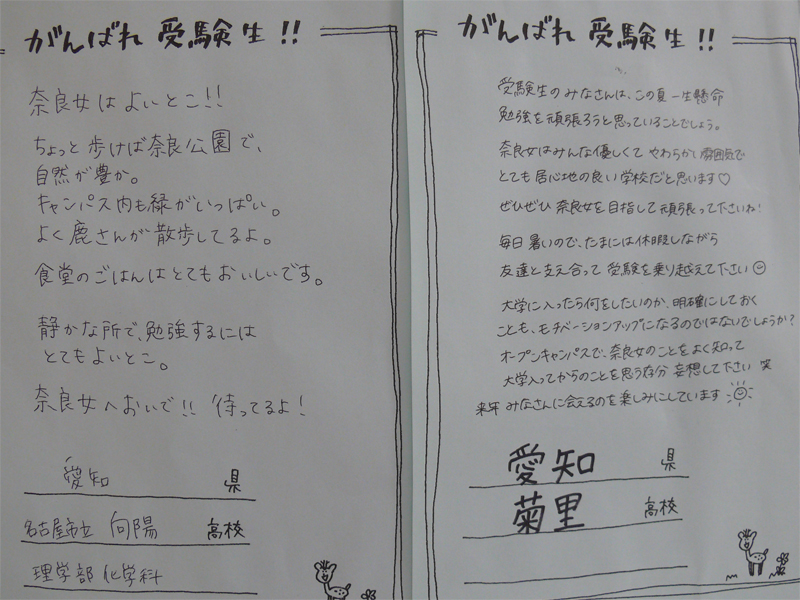 がんばれ 受験生!!
奈良女はよいとこ!!
ちょっと歩けば奈良公園で、
自然が豊か。
キャンパス内も緑がいっぱい。
よく鹿さんが散歩してるよ。
食堂のごはんはとてもおいしいです。
静かな所で、勉強するには
とてもよいとこ。
奈良女へおいで!! 待ってるよ!
愛知 県
名古屋市立 向陽 高校
理学部 化学科
がんばれ 受験生!!
受験生のみなさんは、この夏一生懸命
勉強を頑張ろうと思っていることでしょう。
奈良女はみんな優しくて やわらかい雰囲気で
とても居心地の良い学校だと思います♡
ぜひぜひ 奈良女を目指して頑張って下さいね!
毎日暑いので、たまには休暇しながら
友達と支え合って 受験を乗り越えて下さい☺
大学に入ったら何をしたいのか、明確にしておく
ことも、モチベーションアップになるのではないでしょうか?
オープンキャンパスで、奈良女のことをよく知って
大学入ってからのことを思う存分 妄想して下さい 笑
来年 みなさんに会えるのを楽しみにしています
愛知 県
菊里 高校